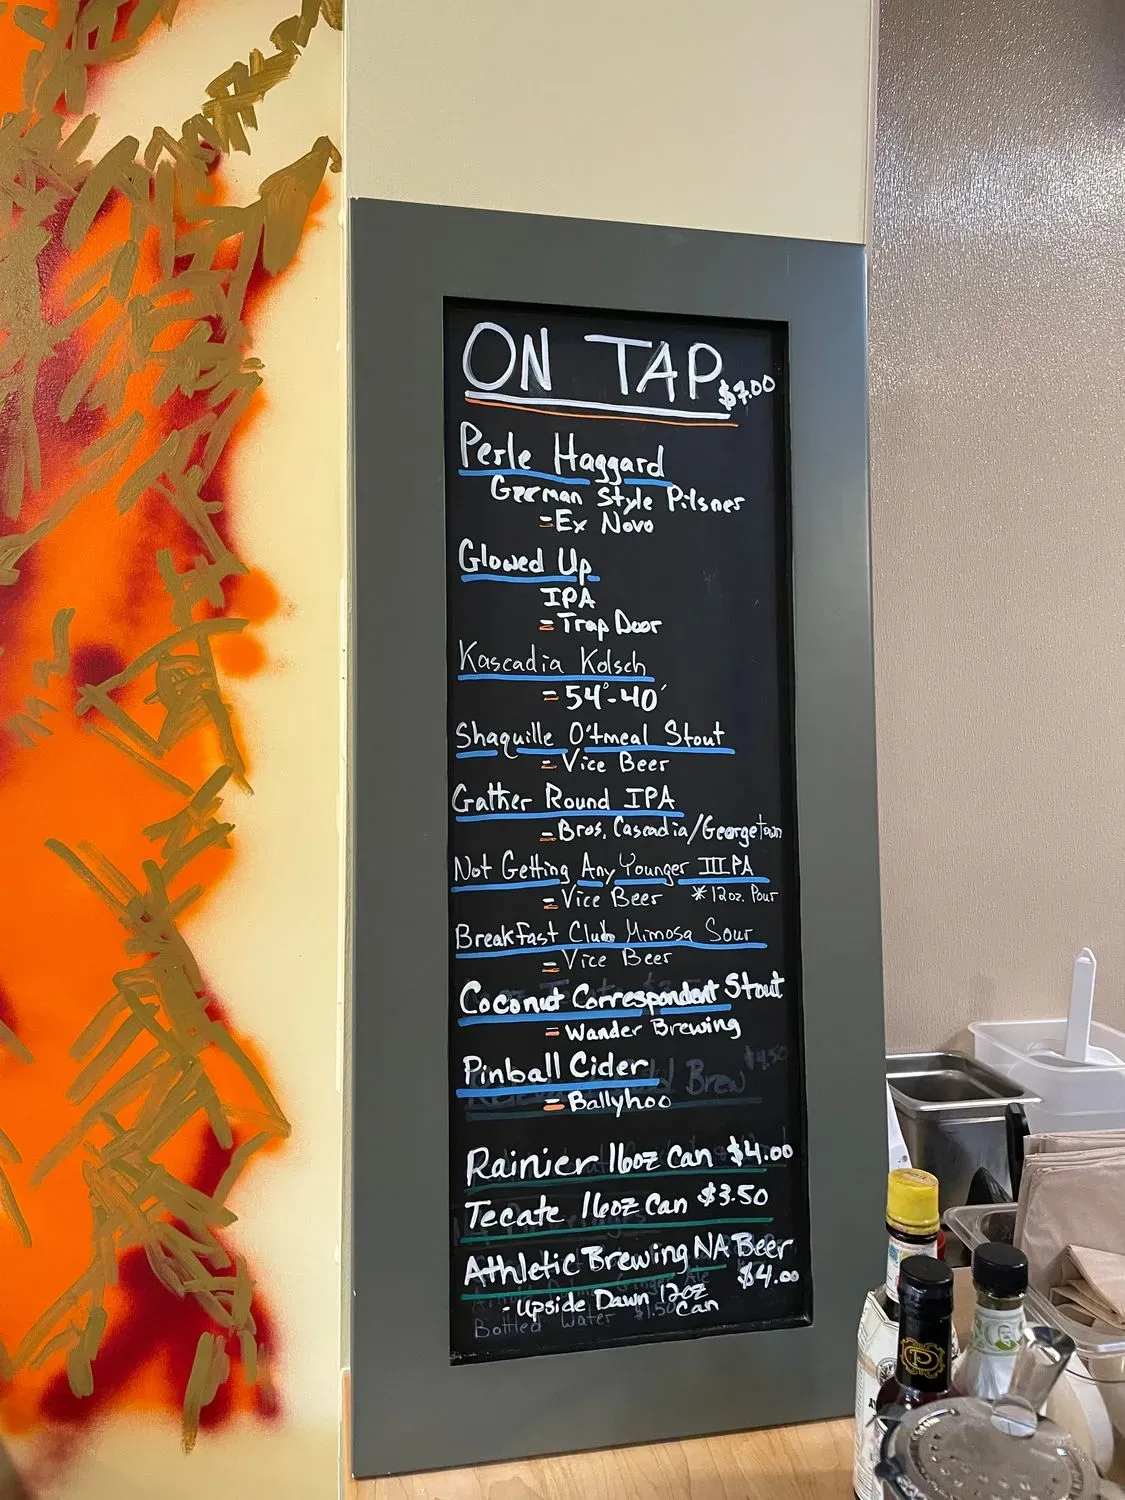 ON TAP $7.00
Perle Haggard
German Style Pilsner
=Ex Novo
Glowed Up
IPA
=Trap Door
Kascadia Kolsch
=54°-40'
Shaquille O'tmeal Stout
=Vice Beer
Gather Round IPA
=Bros. Cascadia/Georgetown
Not Getting Any Younger IIIPA
=Vice Beer *12oz. Pour
Breakfast Club Mimosa Sour
=Vice Beer
Coconut Correspondent Stout
=Wander Brewing
$4.50
Pinball Cider
Brew
=Ballyhoo
Rainier 16oz Can $4.00
Tecate 16oz Can $3.50
Athletic Brewing NA Beer
$4.00
-Upside Dawn 12oz Can
Bottled Water $1.50